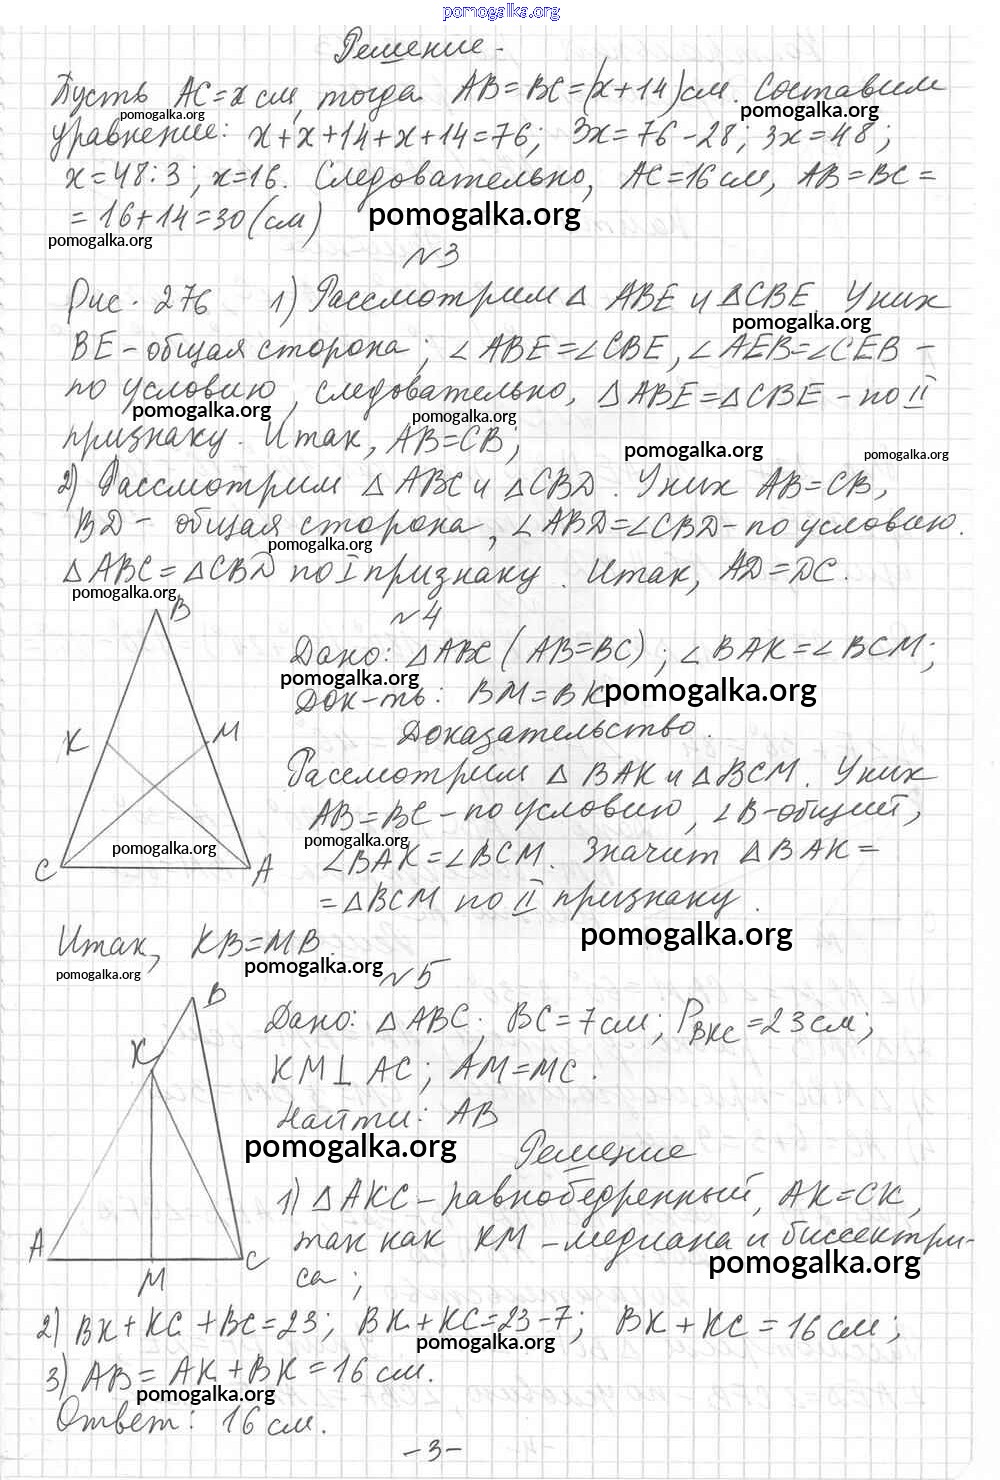 pomogalka.org
Решение.
Пусть AC=x см, тогда AB=BC=(x+14) см. Составим
pomogalka.org pomogalka.org
уравнение: x+x+14+x+14=76; 3x=76-28; 3x=48;
x=48:3; x=16. Следовательно, AC=16 см, AB=BC=
=16+14=30 (см)
pomogalka.org
pomogalka.org
№3
Рис. 276 1) Рассмотрим △ ABE и △CBE. У них
pomogalka.org
BE - общая сторона; ∠ABE=∠CBE, ∠AEB=∠CEB -
по условию, следовательно, △ABE=△CBE - по II
pomogalka.org pomogalka.org
признаку. Итак, AB=CB;
pomogalka.org pomogalka.org
2) Рассмотрим △ABC и △CBD. У них AB=CB,
BD - общая сторона, ∠ABD=∠CBD - по условию.
pomogalka.org
△ABC=△CBD по I признаку. Итак, AD=DC.
pomogalka.org
№4
B
K
M
C
A
pomogalka.org
Дано: △ABC (AB=BC); ∠BAK=∠BCM;
pomogalka.org
Док-ть: BM=BK
pomogalka.org
Доказательство.
Рассмотрим △BAK и △BCM. У них
AB=BC - по условию, ∠B-общий,
pomogalka.org
∠BAK=∠BCM. Значит △BAK=
=△BCM по II признаку.
pomogalka.org
Итак, KB=MB.
pomogalka.org pomogalka.org
№5
B
K
A
M
C
Дано: △ABC; BC=7см; PBKC=23см;
KM⊥AC; AM=MC.
Найти: AB
pomogalka.org
Решение
1) △AKC - равнобедренный, AK=CK,
так как KM - медиана и биссектри-
pomogalka.org
са;
2) BK+KC+BC=23; BK+KC=23-7; BK+KC=16см;
pomogalka.org
3) AB=AK+BK=16 см.
pomogalka.org
Ответ: 16 см.
-3-